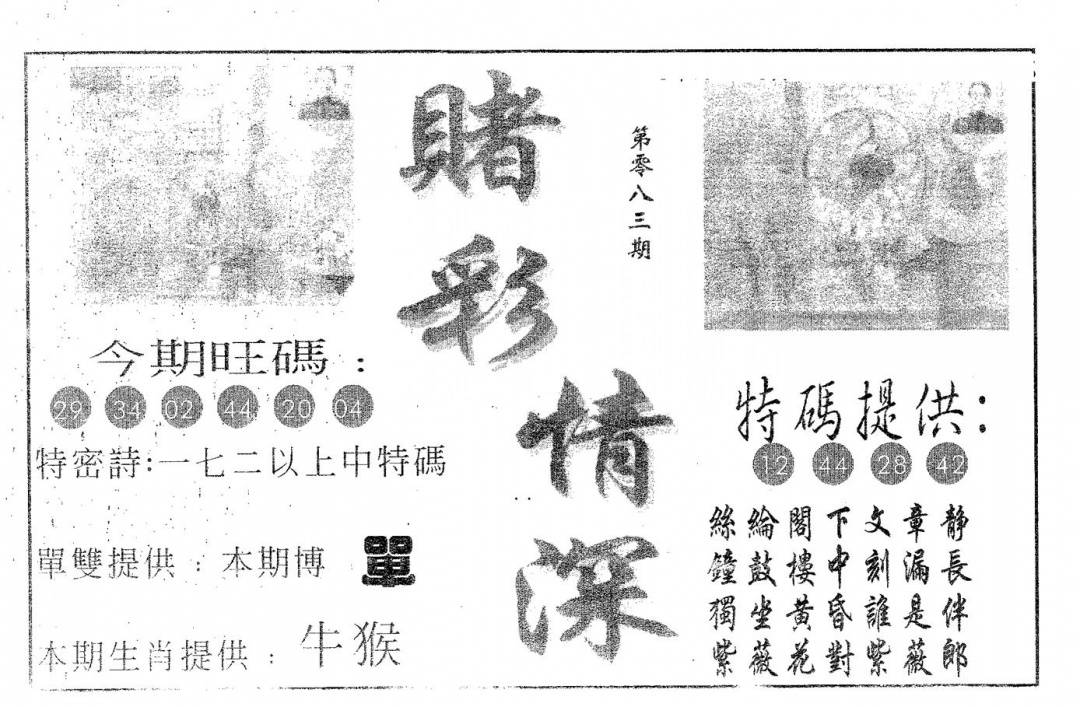 賭彩情深
第零八三期
今期旺碼：
29 34 02 44 20 04
特密詩:一七二以上中特碼
單雙提供：本期博 單
本期生肖提供：牛猴
特碼提供:
12 44 28 42
絲綸閣下文章静
鐘鼓樓中刻漏長
獨坐黃昏誰是伴
紫薇花對紫薇郎